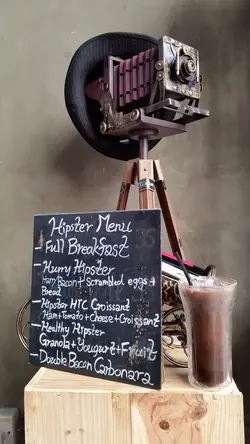 Hipster Menu
Full Breakfast
- Hurry Hipster
Ham Bacon + Scrambled eggs +
Bread
- Hipster HTC Croissant
Ham + Tomato + Cheese + Croissant
- Healthy Hipster
Granola + Yougurt + Fruit
- Double Bacon
Carbonara